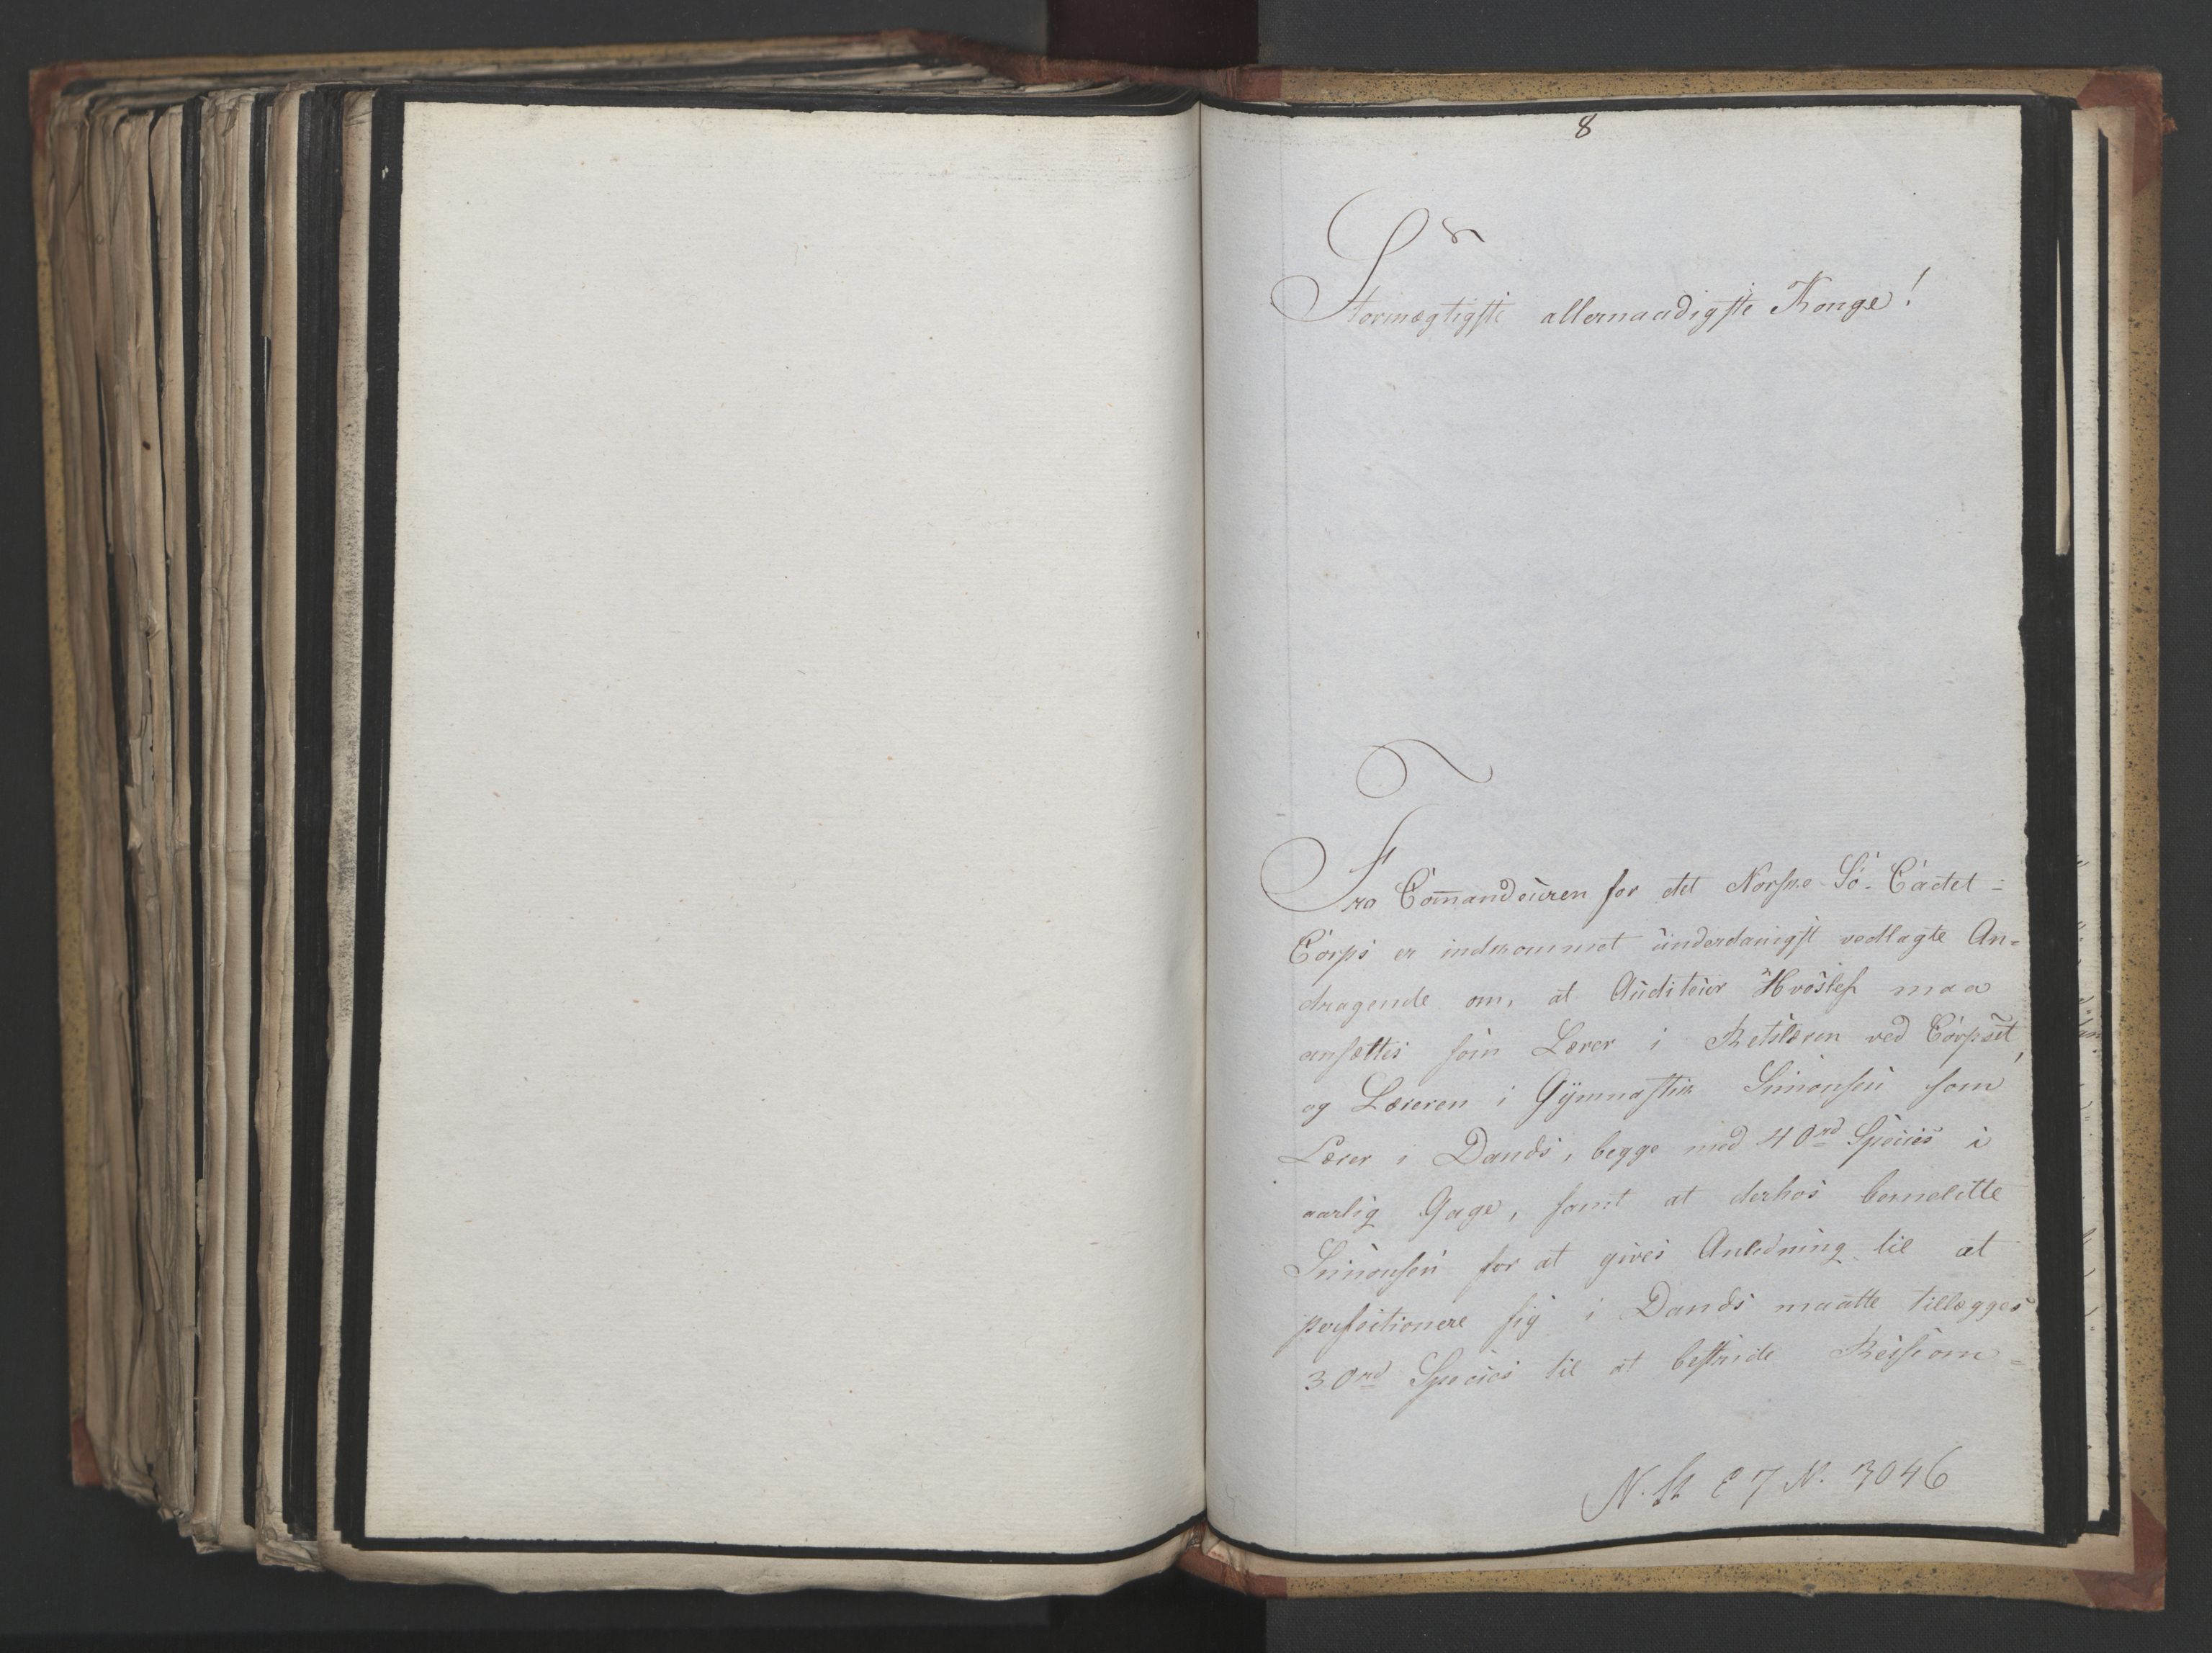 8
Stormægtigste allernaadigste Konge!
Fra Com̄andeuren for det Norske Sö-Cadet-
Corps er indkommet underdanigst vedlagte An-
dragende om, at Auditeur Hvoslef maa
ansættes som Lærer i Retslæren ved Corpset,
og Læreren i Gymnastik Simonsen som
Lærer i Dands, begge med 40rd Species i
aarlig Gage, samt at derhos bemeldte
Simonsen for at gives Anledning til at
perfectionere sig i Dands maatte tillægges
30rd Species til at bestride Reiseom-
N. 3046